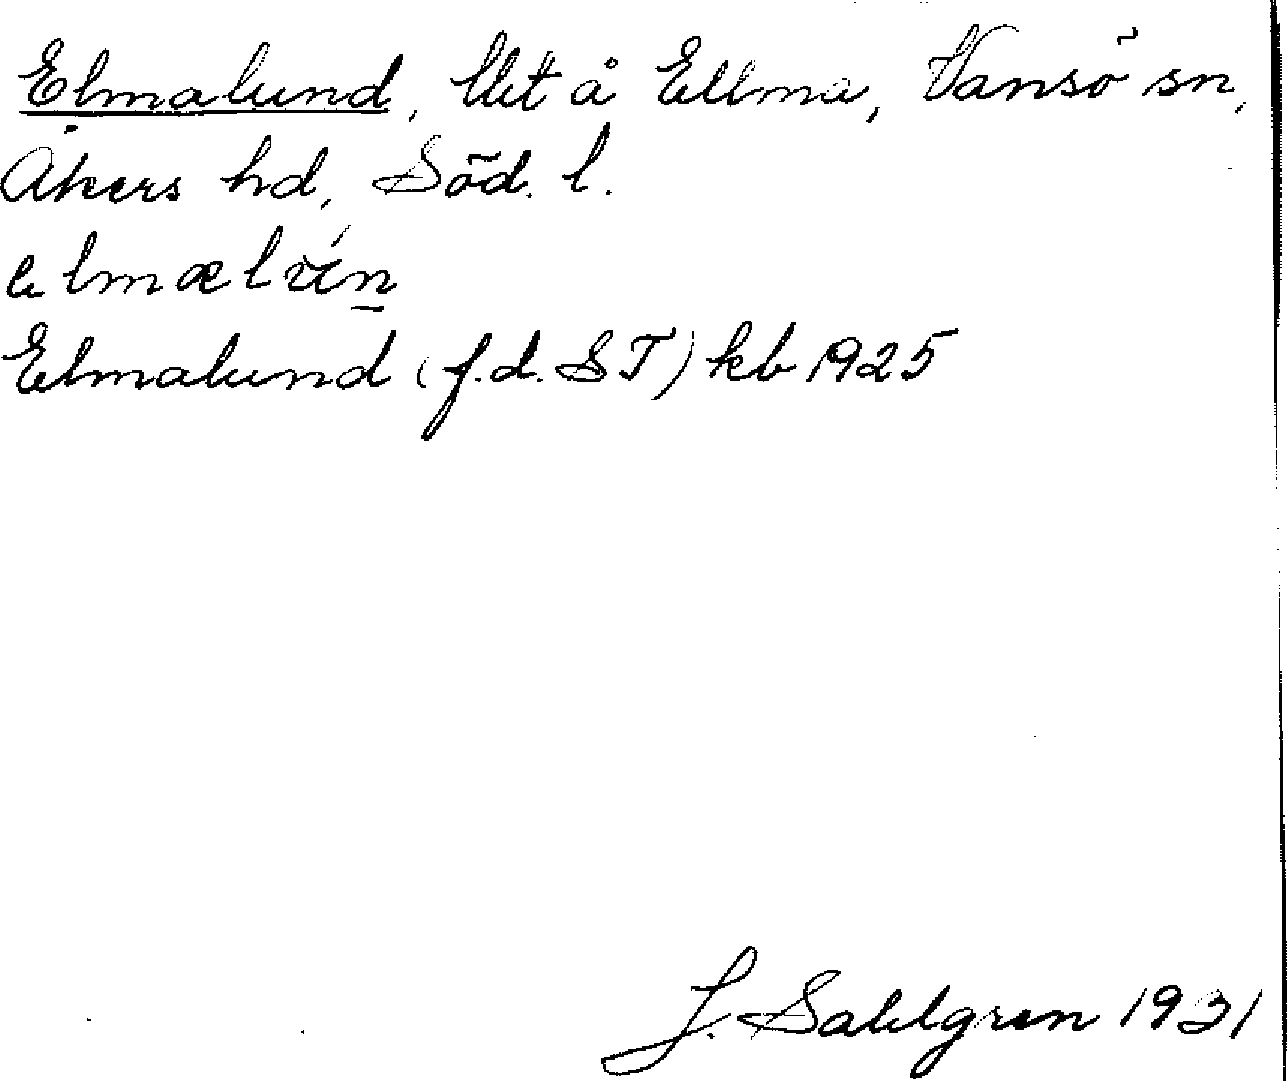 Elmalund, lht å Ellma, Vansö sn,
Åkers hd, Söd. l.
Elmalund (f.d. ST) kb 1925
J. Sahlgren 1931